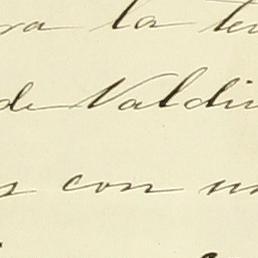 ra la te
de Valdi
s con un